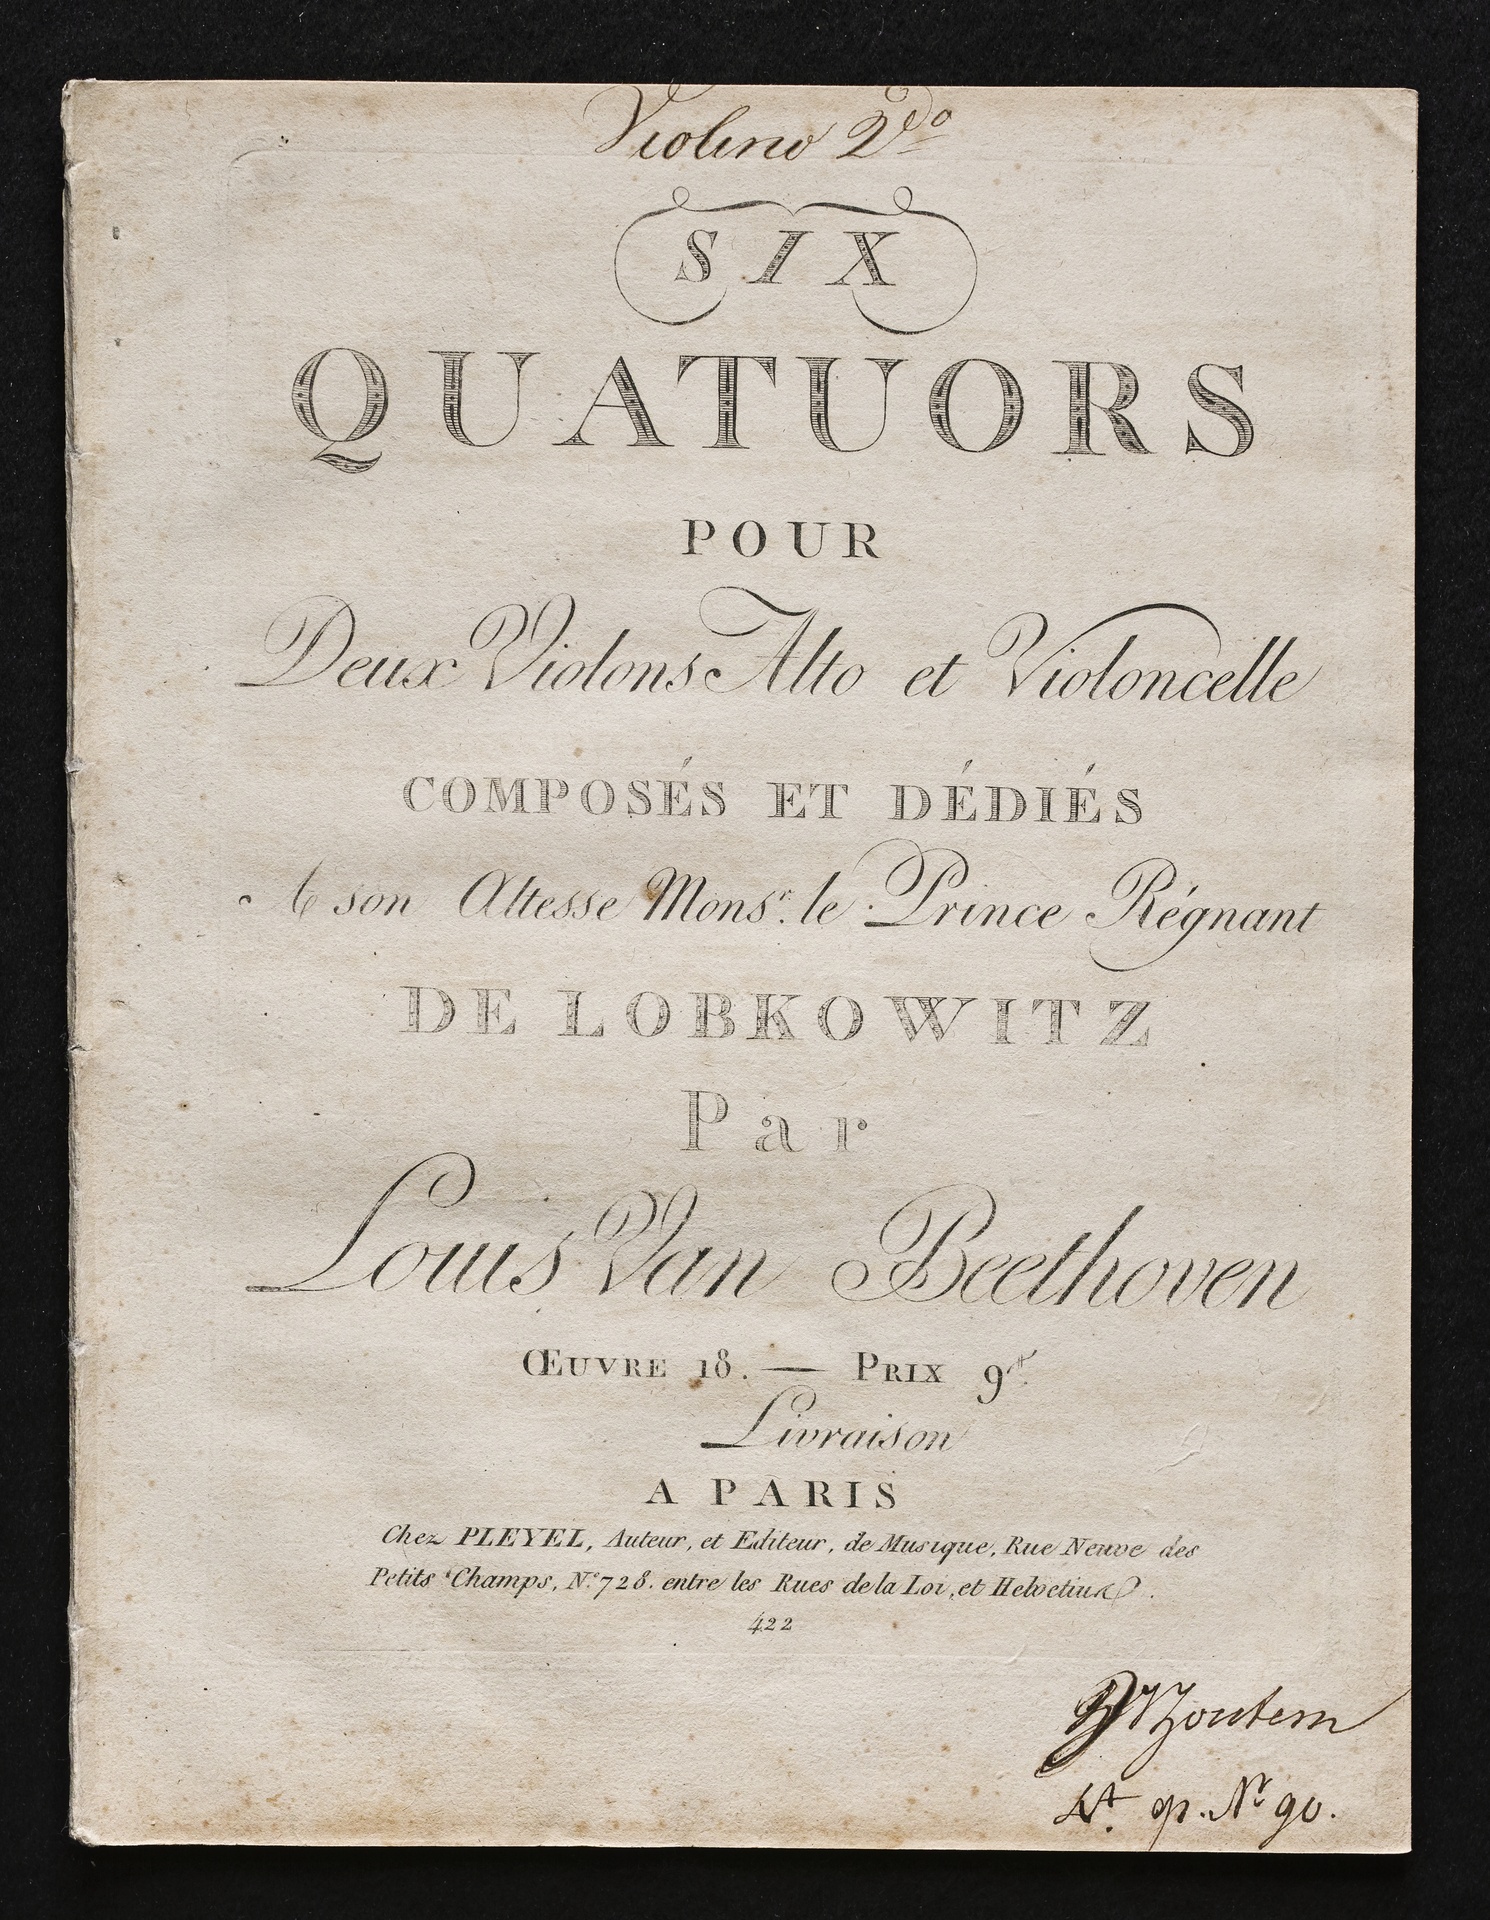 Violino 2do
SIX
QUATUORS
POUR
Deux Violons Alto et Violoncelle
COMPOSÉS ET DÉDIÉS
A son Altesse Monsr. le Prince Régnant
DE LOBKOWITZ
Par
Louis Van Beethoven
ŒUVRE 18. — PRIX 9
Livraison
A PARIS
Chez PLEYEL, Auteur, et Editeur, de Musique, Rue Neuve des
Petits Champs, No. 728. entre les Rues de la Loi, et Helvetius.
422
4t. op. Nr 90.